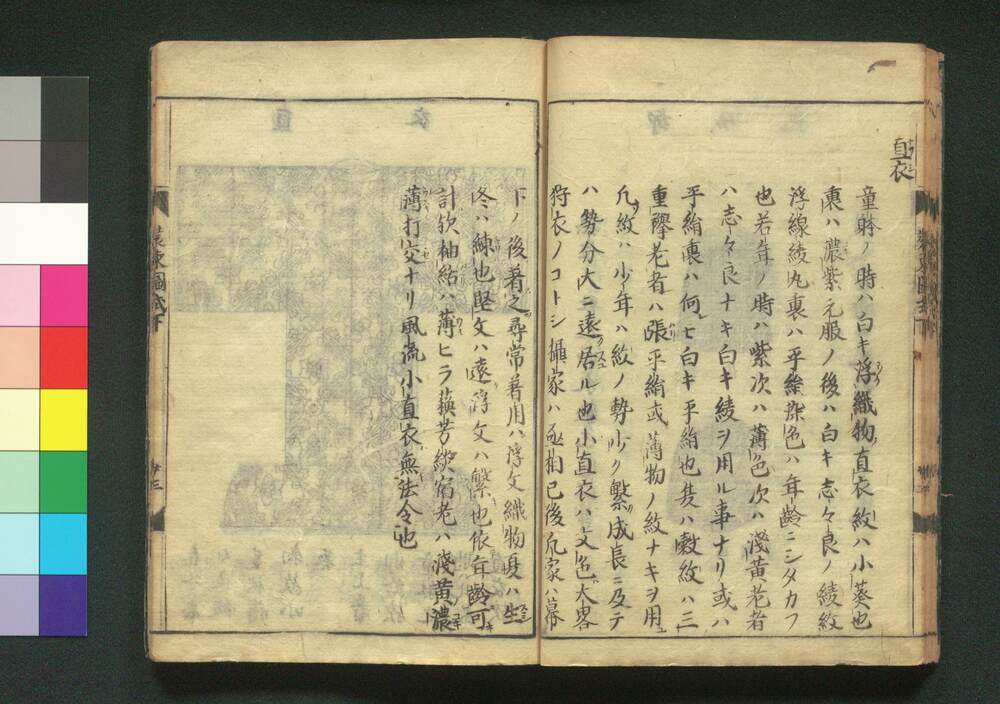 直衣
童躰ノ時ハ白キ浮織物直衣紋ハ小葵也
裏ハ濃紫元服ノ後ハ白キ志々良ノ綾紋
浮線綾丸裏ハ平絹染色ハ年齢ニシタカフ
也若年ノ時ハ紫次ハ薄色次ハ淺黄老者
ハ志々良ナキ白キ綾ヲ用ル事ナリ或ハ
平絹裏ハ何モ白キ平絹也夏ハ縠紋ハ三
重襷老者ハ張平絹或薄物ノ紋ナキヲ用
凡紋ハ少年ハ紋ノ勢少ク繁成長ニ及テ
ハ勢分大ニ遠居ル也小直衣ハ文色大畧
狩衣ノコトシ攝家ハ丞相已後凡家ハ幕
下ノ後着之尋常着用ハ浮文織物夏ハ生
冬ハ練也堅文ハ遠浮文ハ繁也依年齢可
計欤袖結ハ薄ヒラ蘓芳緂宿老ハ淺黄濃
薄打交ナリ風流小直衣無法令也
裝束圖式下